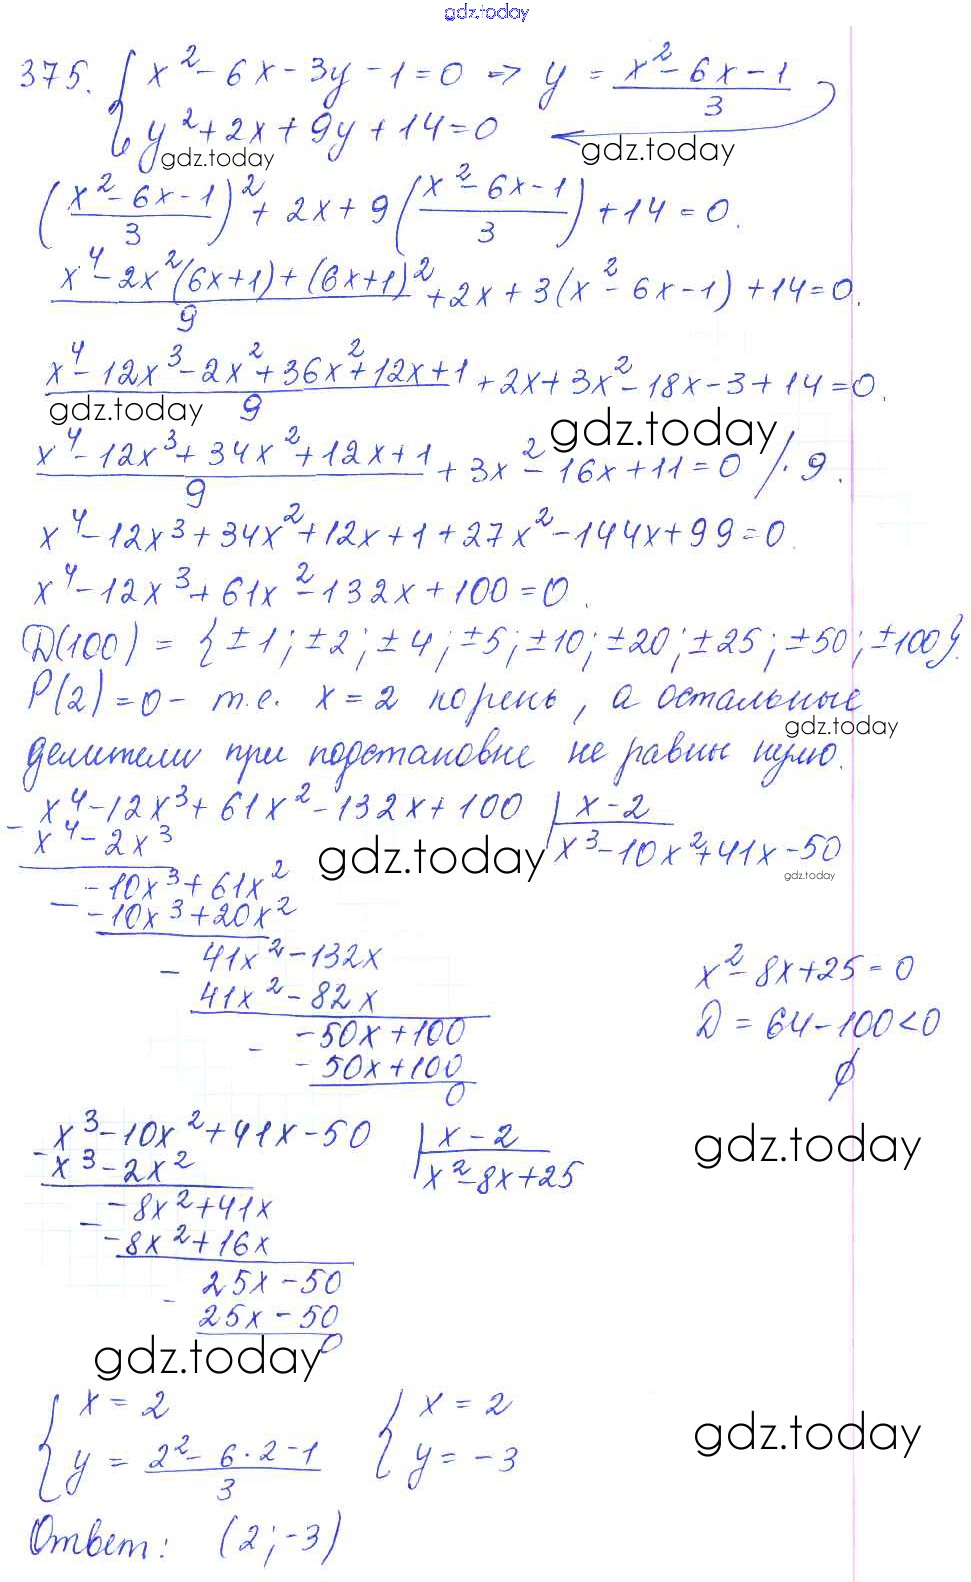 gdz.today
375. { x² - 6x - 3y - 1 = 0 ⇒ y = (x² - 6x - 1)/3
y² + 2x + 9y + 14 = 0
gdz.today gdz.today
((x² - 6x - 1)/3)² + 2x + 9((x² - 6x - 1)/3) + 14 = 0.
(x⁴ - 2x²(6x+1) + (6x+1)²)/9 + 2x + 3(x² - 6x - 1) + 14 = 0.
(x⁴ - 12x³ - 2x² + 36x² + 12x + 1)/9 + 2x + 3x² - 18x - 3 + 14 = 0.
gdz.today gdz.today
(x⁴ - 12x³ + 34x² + 12x + 1)/9 + 3x² - 16x + 11 = 0 /· 9.
x⁴ - 12x³ + 34x² + 12x + 1 + 27x² - 144x + 99 = 0.
x⁴ - 12x³ + 61x² - 132x + 100 = 0.
D(100) = {±1; ±2; ±4; ±5; ±10; ±20; ±25; ±50; ±100}.
P(2) = 0 - т.е. x = 2 корень, а остальные
gdz.today
делители при подстановке не равны нулю.
x⁴ - 12x³ + 61x² - 132x + 100 | x - 2
- x⁴ - 2x³ gdz.today x³ - 10x² + 41x - 50
gdz.today
-10x³ + 61x²
- -10x³ + 20x²
41x² - 132x x² - 8x + 25 = 0
- 41x² - 82x D = 64 - 100 < 0
-50x + 100
- -50x + 100 ∅
0
x³ - 10x² + 41x - 50 | x - 2 gdz.today
- x³ - 2x² x² - 8x + 25
-8x² + 41x
- -8x² + 16x
25x - 50
- 25x - 50
0
gdz.today
{ x = 2 { x = 2
y = (2² - 6·2 - 1)/3 y = -3
gdz.today
Ответ: (2; -3)